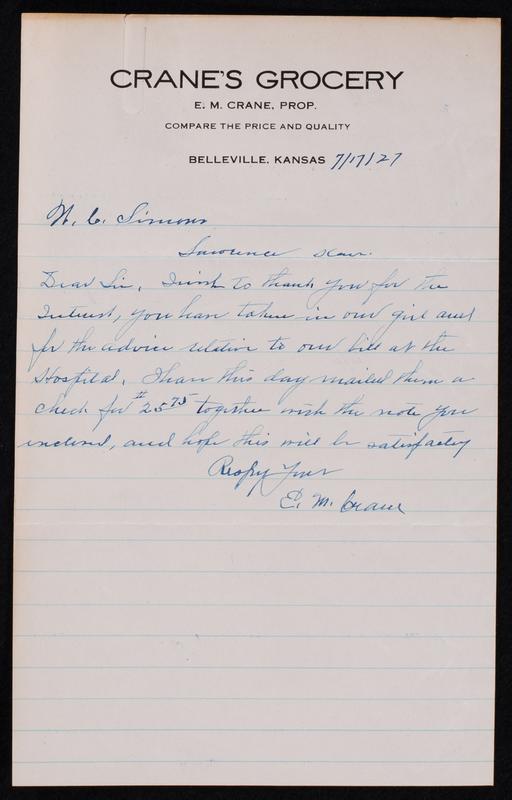 CRANE'S GROCERY
E. M. CRANE, PROP.
COMPARE THE PRICE AND QUALITY
BELLEVILLE, KANSAS 7/17/27
W. C. Simons
Lawrence Kan.
Dear Sir, I wish to thank you for the
Interest, you have taken in our girl and
for the advice relative to our bill at the
Hospital. I have this day mailed them a
check for $25.75 together with the note you
inclosed, and hope this will be satisfactory
Respy Yours
E. M. Crane